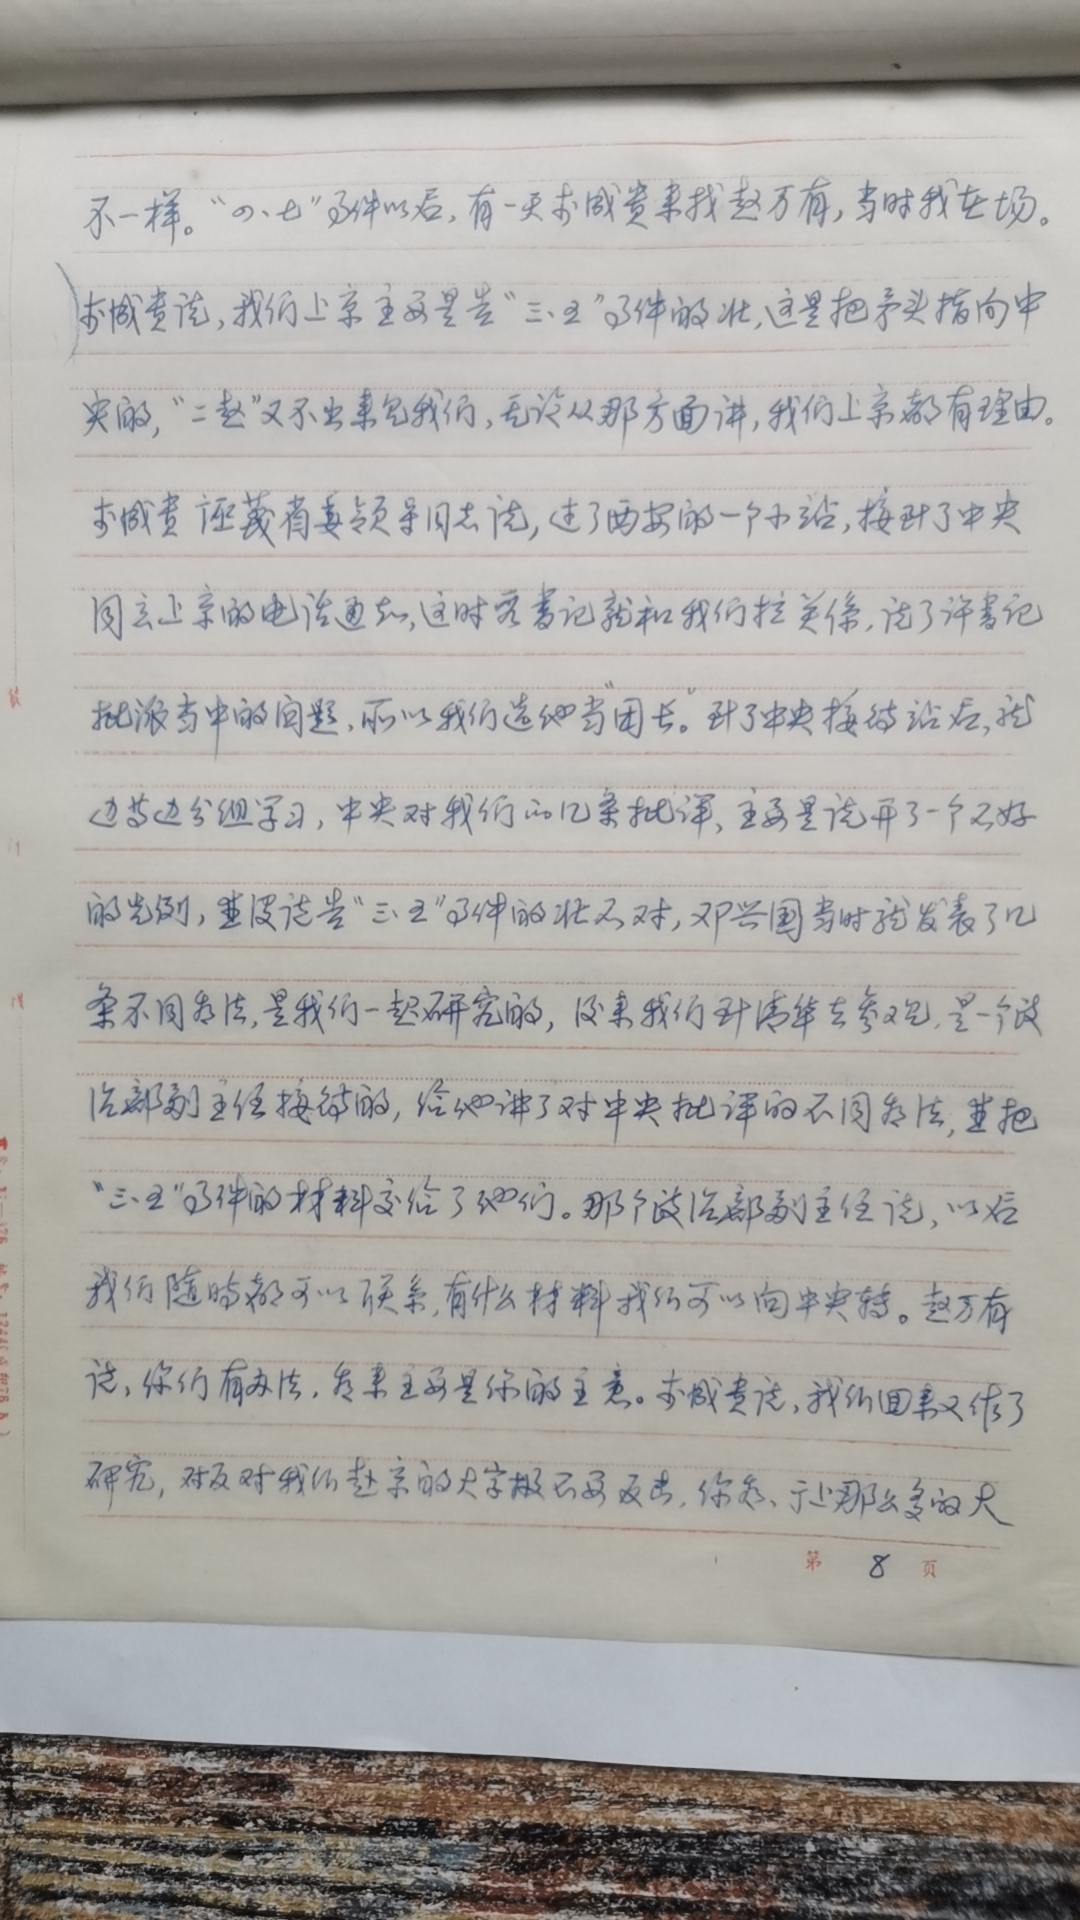 不一样。“四、七”事件以后,有一天李成贵来找赵万有,当时我在场。
李成贵说,我们上京主要是告“三、五”事件的状,这是把矛头指向中
央的,“二赵”又不出来见我们,无论从那方面讲,我们上京都有理由。
李成贵诬蔑省委领导同志说,过了西安的一个小站,接到了中央
同意上京的电话通知,这时 书记就和我们拉关係,说了许书记
批派当中的问题,所以我们选他当“团长”。到了中央接待站后,就
边 边分组学习,中央对我们的几条批评,主要是说开了一个不好
的先例,并没说告“三、五”事件的状不对,邓兴国当时就发表了几
条不同看法,是我们一起研究的,后来我们到清华去参观,是一个政
治部副主任接待的,给他讲了对中央批评的不同看法,并把
“三、五”事件的材料交给了他们。那个政治部副主任说,以后
我们随时都可以联系,有什么材料我们可以向中央转。赵万有
说,你们有办法,看来主要是你的主意。李成贵说,我们回来又作了
研究,对反对我们赴京的大字报不要反击,你看, 那么多的大
第 8 页